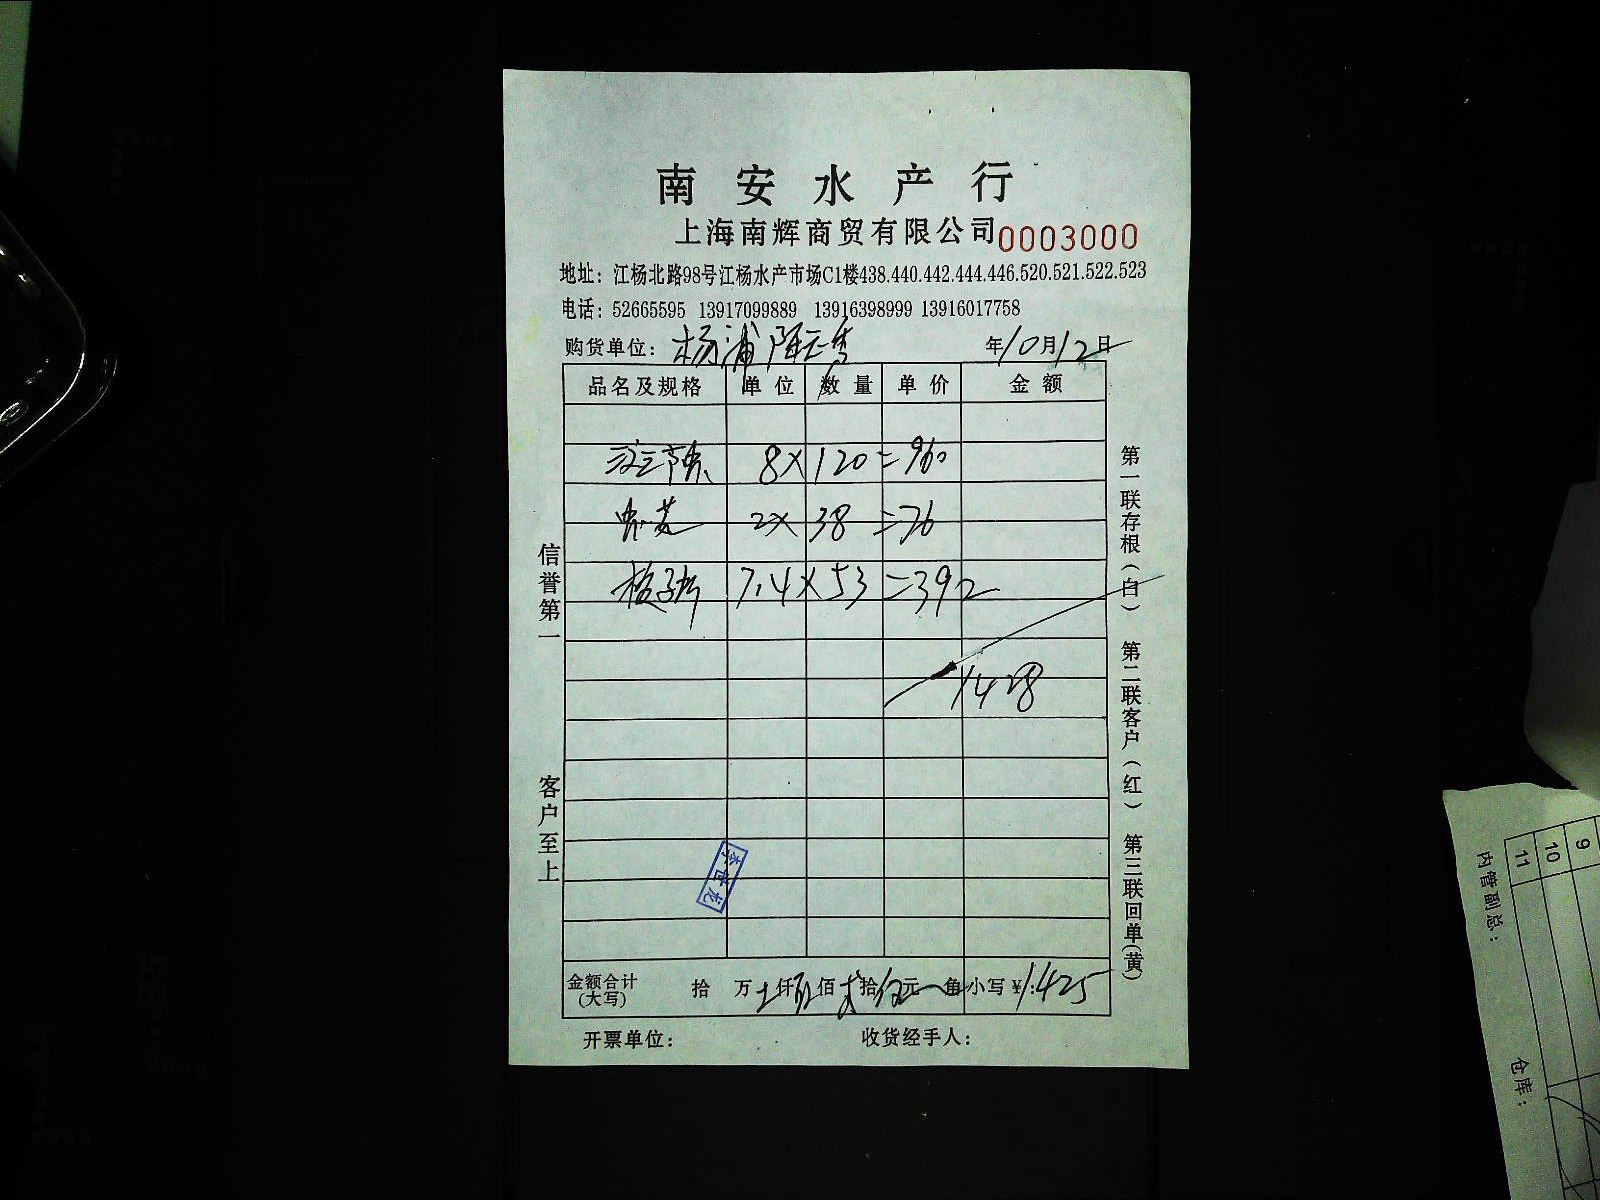 南安水产行
上海南辉商贸有限公司0003000
地址：江杨北路98号江杨水产市场C1楼438.440.442.444.446.520.521.522.523
电话：52665595 13917099889 13916398999 13916017758
购货单位：杨浦 年10月12日
品名及规格 单位 数量 单价 金额
8×120=960
2×38=76
7.4×53=392
1428
金额合计(大写) 拾 万 仟 佰 拾 元 角 小写￥:1425
开票单位： 收货经手人：
信誉第一 客户至上
第一联存根(白) 第二联客户(红) 第三联回单(黄)
李世龙
9
10
11
内管副总：
仓库：